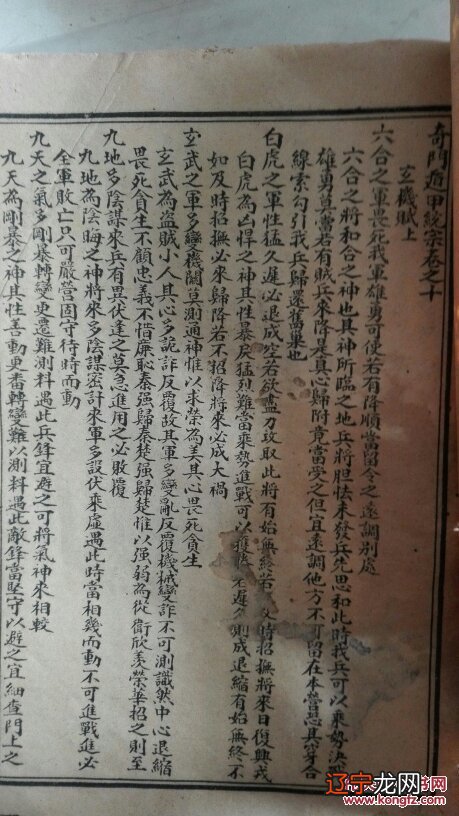 奇門遁甲統宗卷之十
玄機賦上
六合之軍畏死我軍雄勇可使若有降順當留令之遠調別處
六合之將和合之神也其神所臨之地兵將胆怯未發兵先思和此時我兵可以乘勢決
雄勇莫當若有賊兵來降是真心歸附竟當受之但宜遠調他方不可留在本營恐其穿合
線索勾引我兵歸還舊巢也
白虎之軍性猛久遲必退成空若欲盡力攻取此將有始無終若 時招撫將來日復興戎
白虎為凶悍之神其性暴戾猛烈難當乘勢進戰可以獲勝 不遲 則成退縮有始無終不
如及時招撫必來歸降若不招降將來必成大禍
玄武之軍多變機關莫測通神惟以求榮為美其心畏死貪生
玄武為盜賊小人其心多詭詐反覆故其軍多變亂反覆機械變詐不可測識然中心退縮
畏死貪生不顧忠義不惜廉恥秦强歸秦楚强歸楚惟以强弱為從衛欣羨榮華招之則至
九地多陰謀來兵有異伏逢之莫急進用之必敗覆
九地為陰晦之神將來多陰謀密計來軍多設伏乘虛遇此時當相幾而動不可進戰進必
全軍敗亡只可嚴營固守待時而動
九天之氣多剛暴轉變更還難測料遇此兵鋒宜避之可將氣神來相較
九天為剛暴之神其性善動更番轉變難以測料遇此敵鋒當堅守以避之宜細查門上之
辽宁龙网
www.kongjz.com